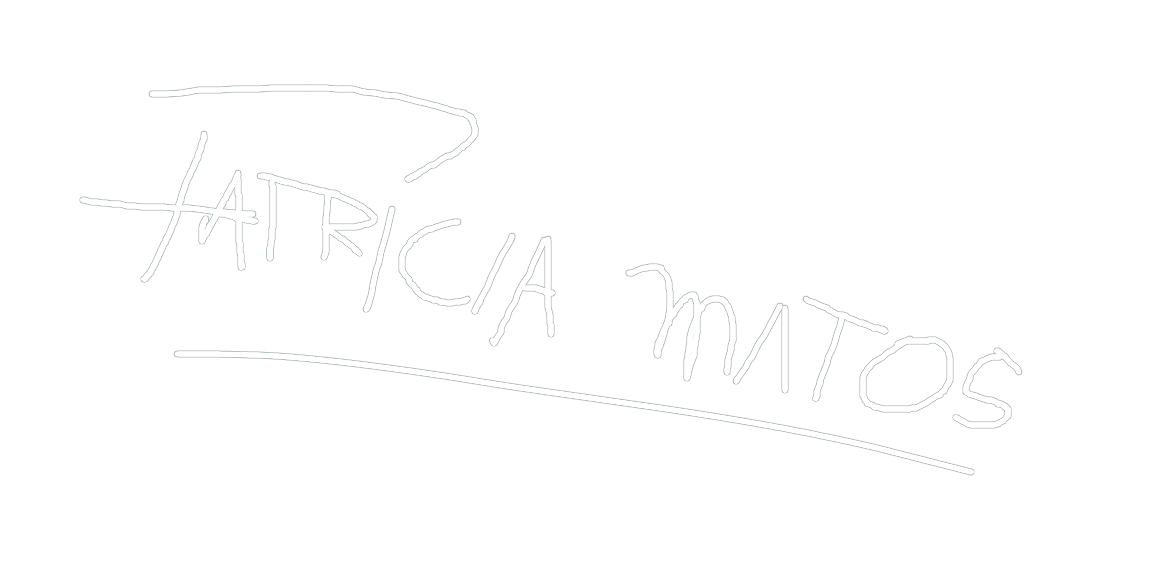 PATRICIA MATOS